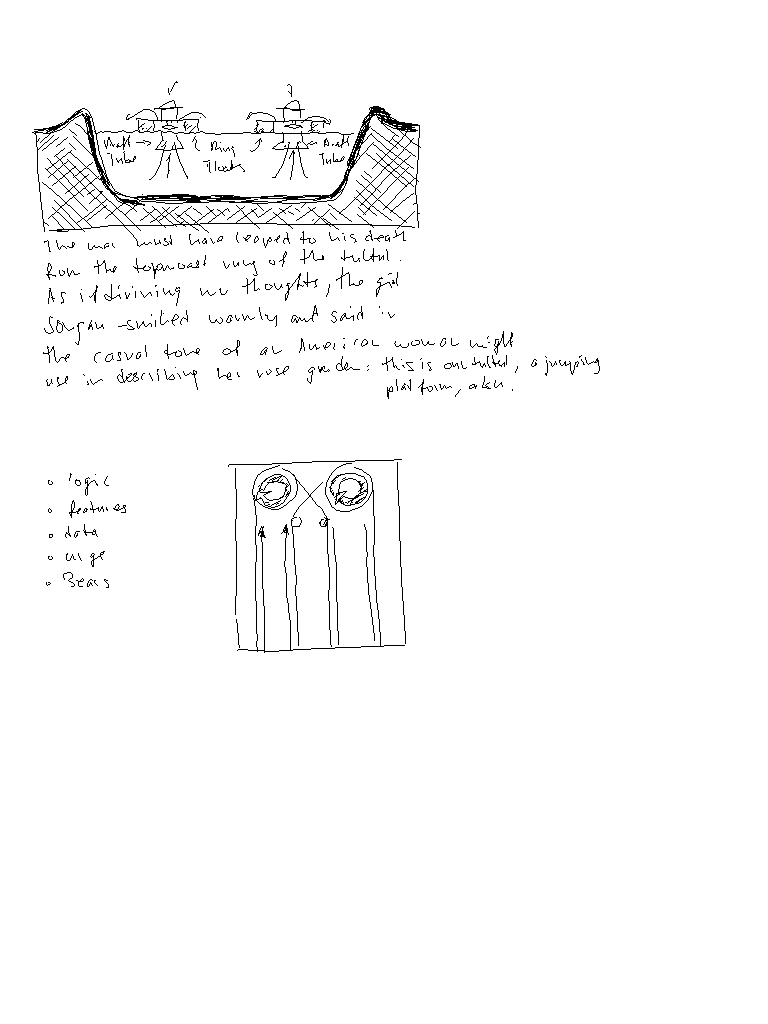 Draft Tube
Ring Floats
Draft Tube
The man must have leaped to his death
from the topmost rung of the
As if divining my thoughts, the girl
smiled warmly and said in
the casual tone of an American woman might
use in describing her rose garden: this is our, a jumping
platform,
logic
features
data
urge
Bears